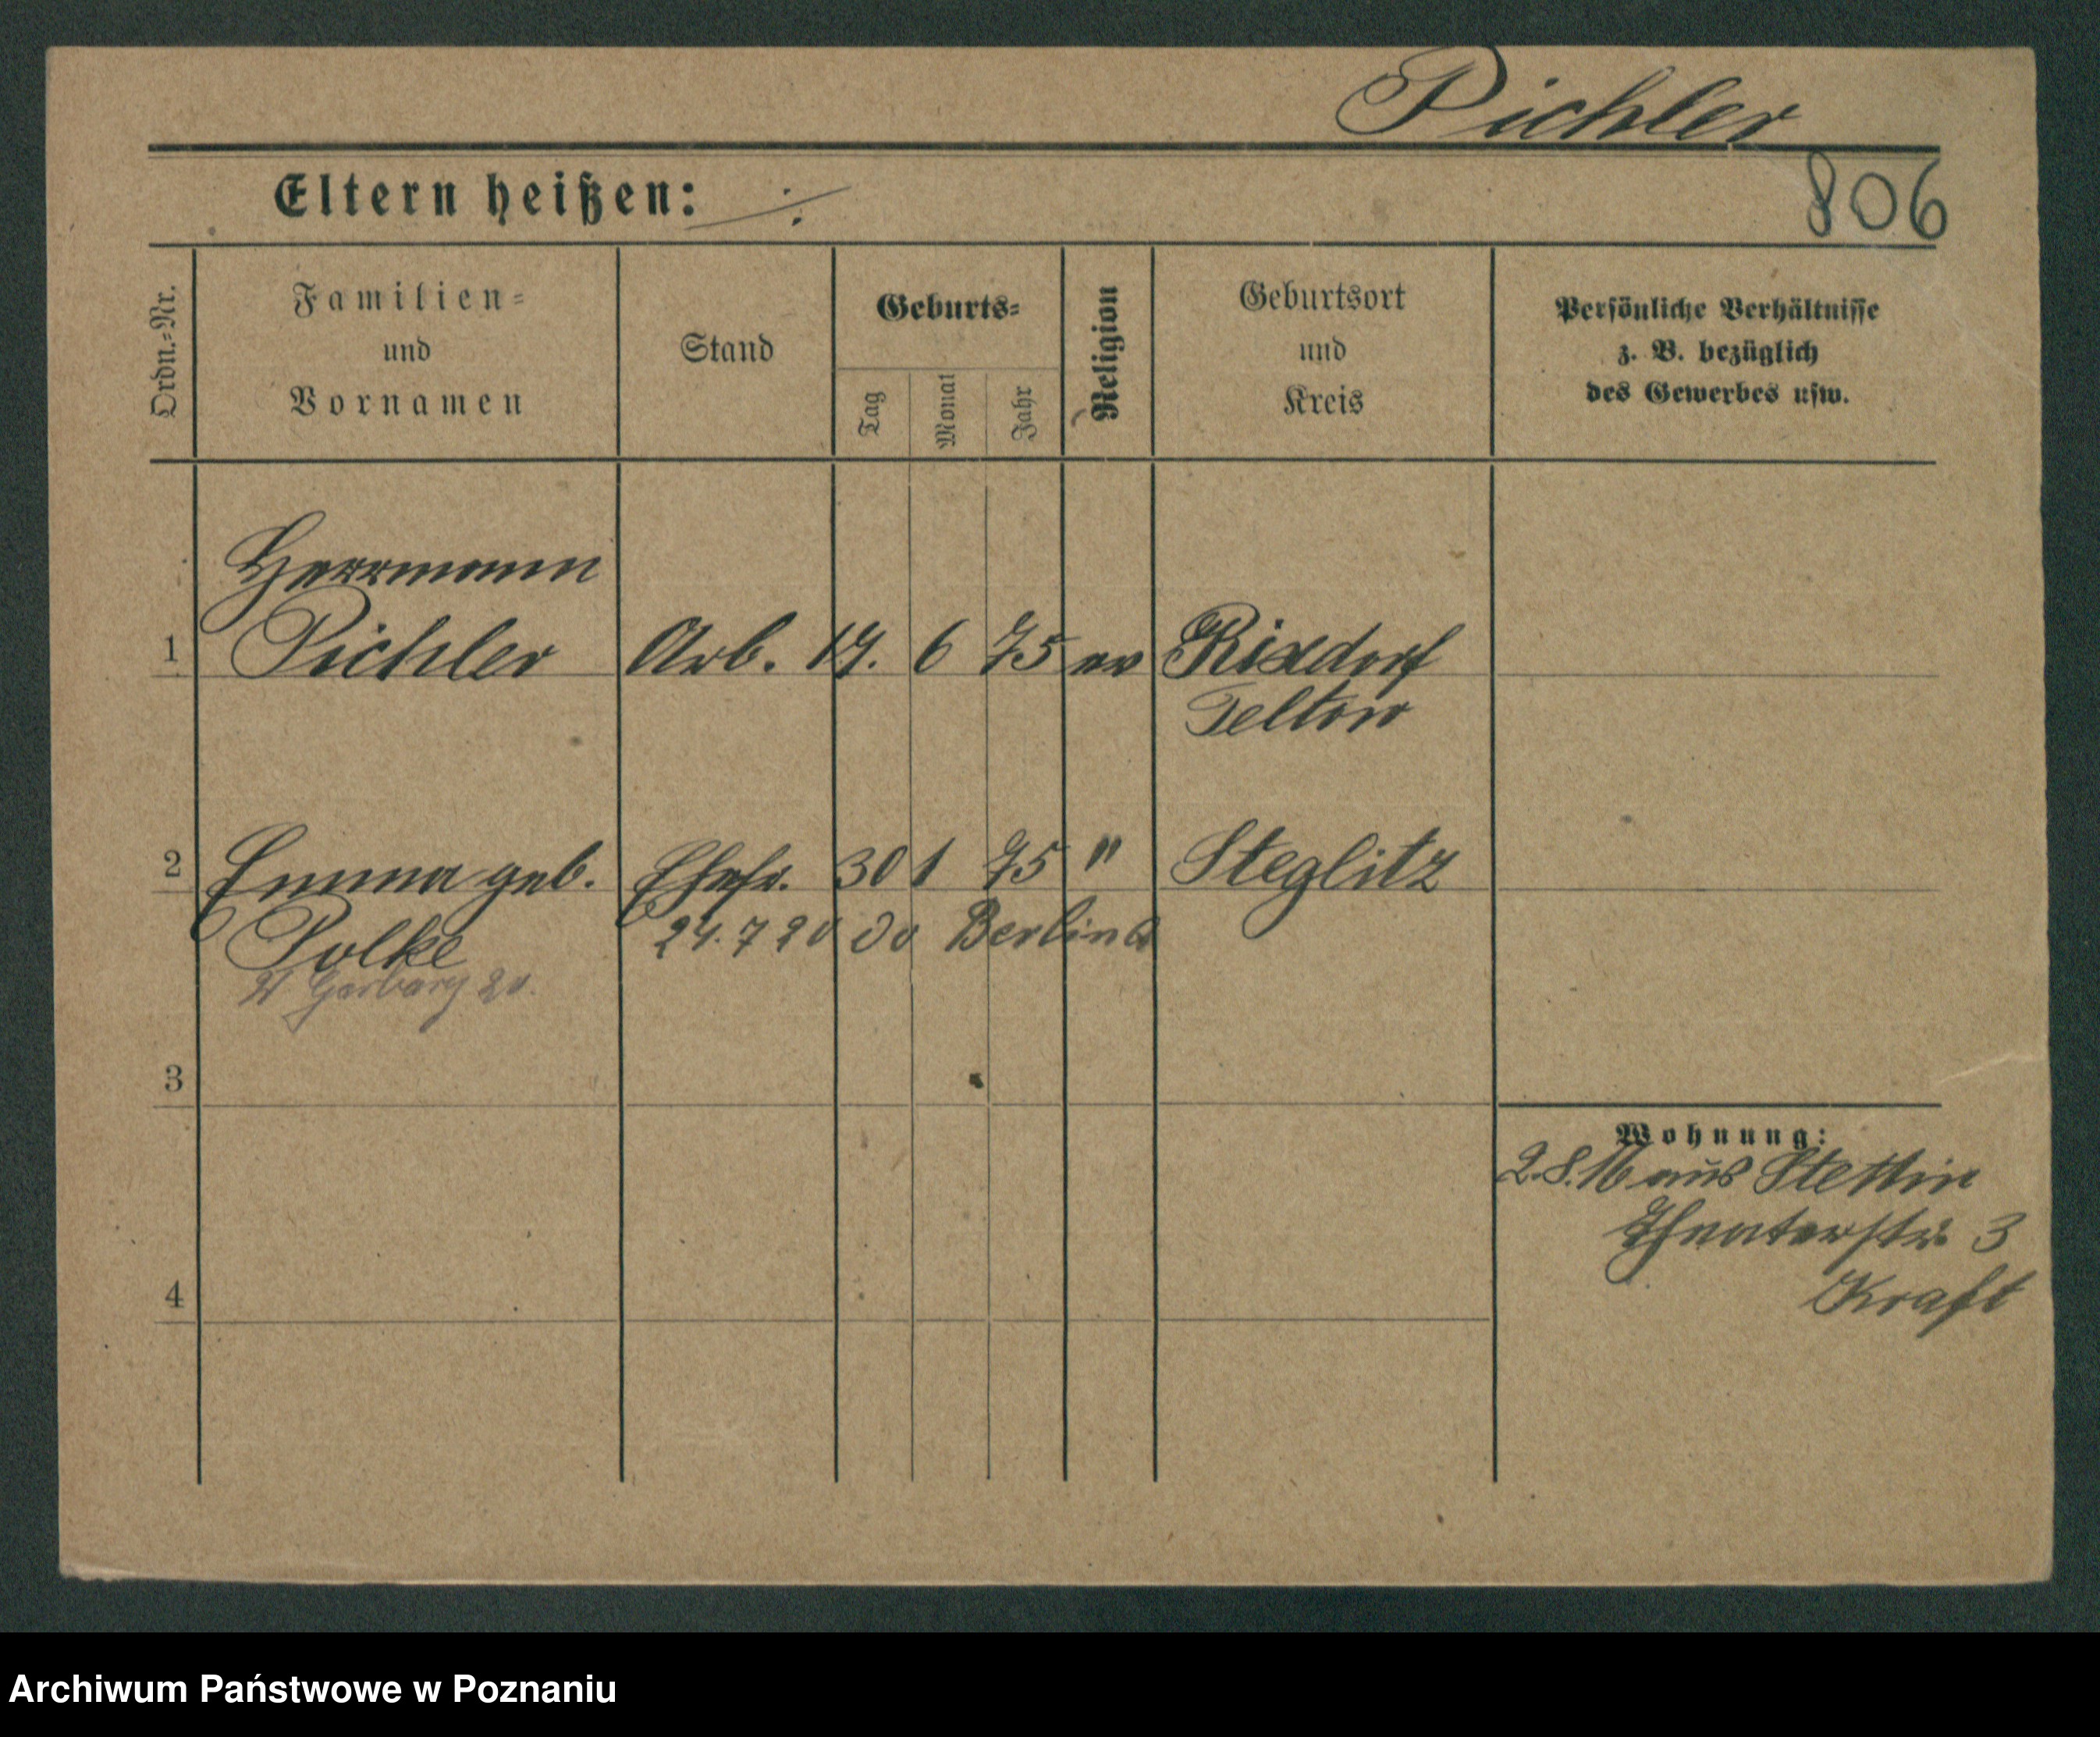 Pichler
806
Eltern heißen: ./.
Ordn.-Nr.
Familien-
und
Vornamen
Stand
Geburts-
Tag
Monat
Jahr
Religion
Geburtsort
und
Kreis
Persönliche Verhältnisse
z. B. bezüglich
des Gewerbes usw.
Herrmann
1 Pichler Arb. 17. 6 75 ev Rixdorf
Teltow
2 Emma geb. Ehefr. 30 1 75 " Steglitz
Polke 24. 7 20 Berlin
Garbary 20.
3
Wohnung:
2.8.16 aus Stettin
Theaterstr. 3
Kraft
4
Archiwum Państwowe w Poznaniu